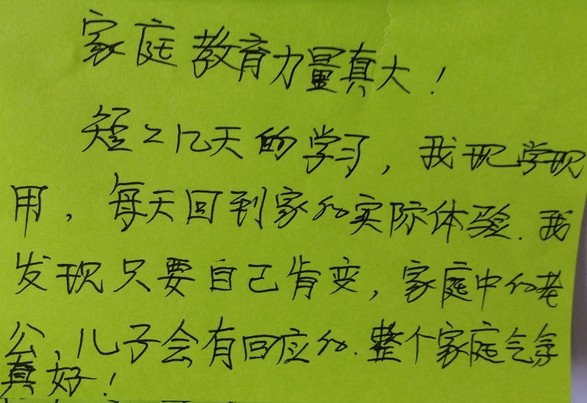 家庭教育力量真大！
短短几天的学习，我现学现
用，每天回到家的实际体验.我
发现只要自己肯变，家庭中的老
公,儿子会有回应的.整个家庭气氛
真好！